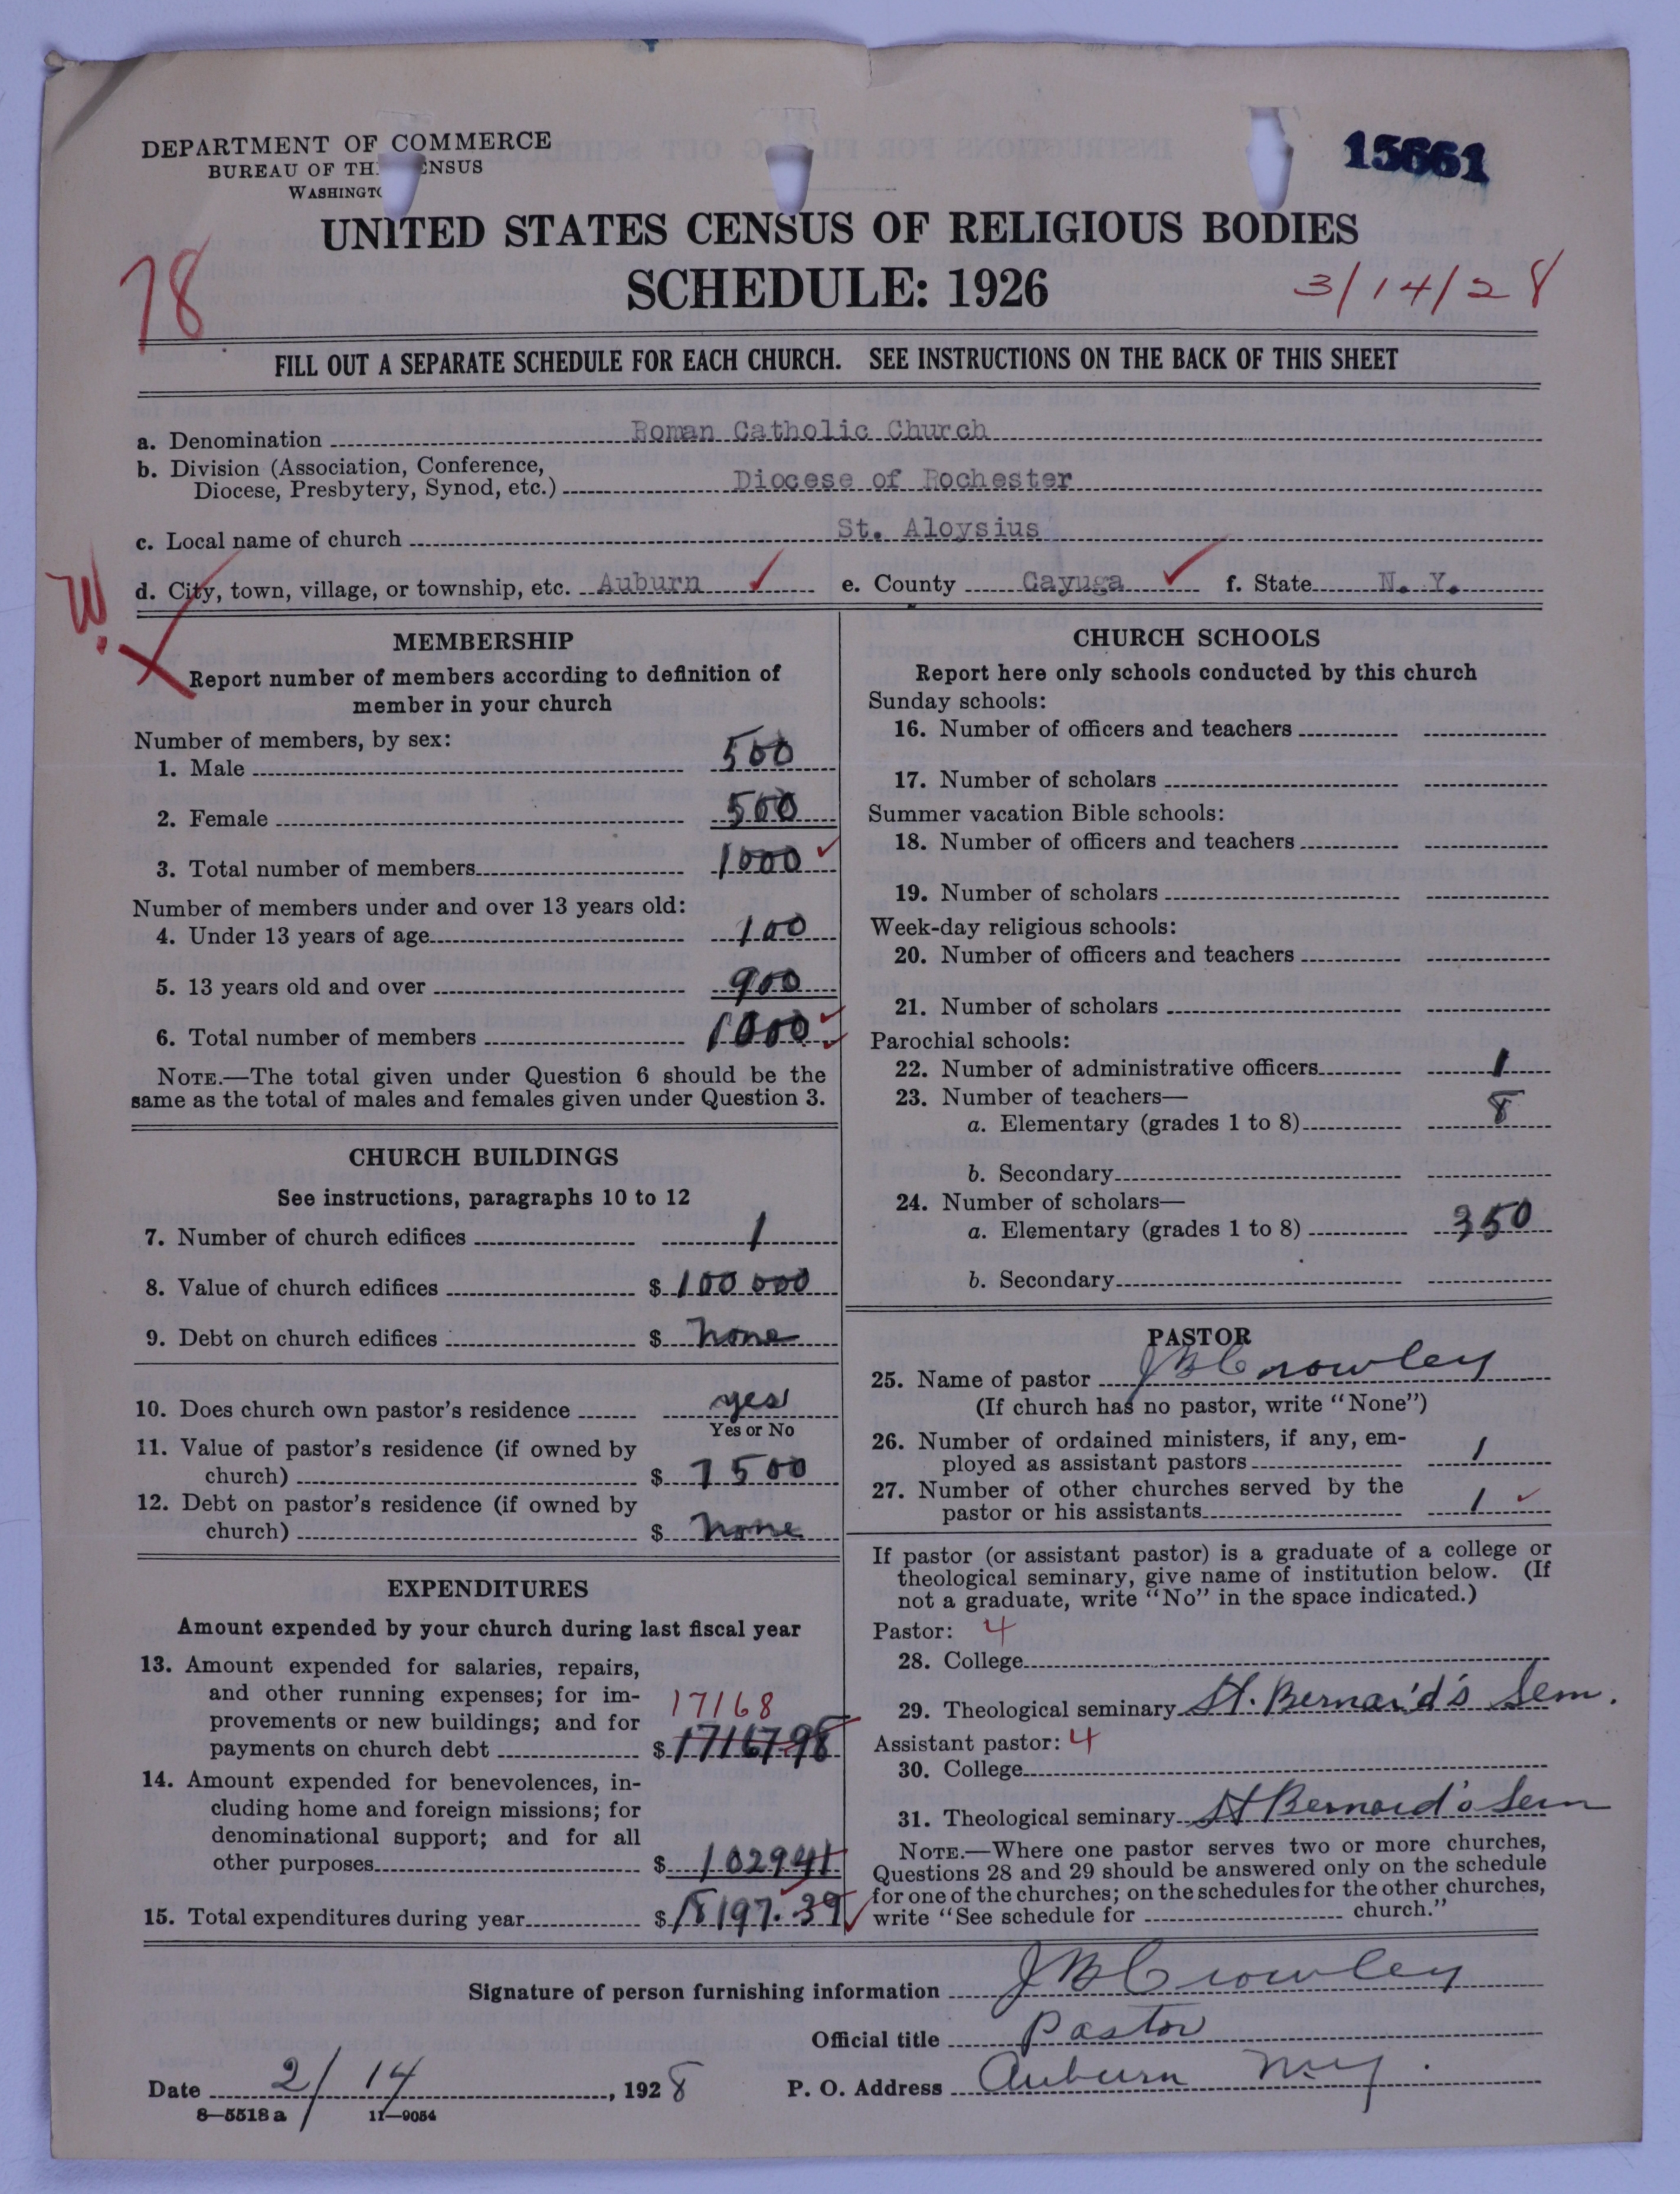 DEPARTMENT OF COMMERCE
BUREAU OF TH ENSUS
WASHINGTO
15661
UNITED STATES CENSUS OF RELIGIOUS BODIES
SCHEDULE: 1926
78
3/14/28
FILL OUT A SEPARATE SCHEDULE FOR EACH CHURCH. SEE INSTRUCTIONS ON THE BACK OF THIS SHEET
a. Denomination Roman Catholic Church
b. Division (Association, Conference,
Diocese, Presbytery, Synod, etc.) Diocese of Rochester
c. Local name of church St. Aloysius
d. City, town, village, or township, etc. Auburn e. County Cayuga f. State N. Y.
MEMBERSHIP
Report number of members according to definition of
member in your church
Number of members, by sex:
1. Male 500
2. Female 500
3. Total number of members 1000
Number of members under and over 13 years old:
4. Under 13 years of age 100
5. 13 years old and over 900
6. Total number of members 1000
NOTE.—The total given under Question 6 should be the
same as the total of males and females given under Question 3.
CHURCH BUILDINGS
See instructions, paragraphs 10 to 12
7. Number of church edifices 1
8. Value of church edifices $ 100 000
9. Debt on church edifices $ none
10. Does church own pastor's residence yes
Yes or No
11. Value of pastor's residence (if owned by
church) $ 7500
12. Debt on pastor's residence (if owned by
church) $ none
EXPENDITURES
Amount expended by your church during last fiscal year
13. Amount expended for salaries, repairs,
and other running expenses; for im-
provements or new buildings; and for
17168
payments on church debt $ 17167 98
14. Amount expended for benevolences, in-
cluding home and foreign missions; for
denominational support; and for all
other purposes $ 1029 41
15. Total expenditures during year $ 18197.39
CHURCH SCHOOLS
Report here only schools conducted by this church
Sunday schools:
16. Number of officers and teachers
17. Number of scholars
Summer vacation Bible schools:
18. Number of officers and teachers
19. Number of scholars
Week-day religious schools:
20. Number of officers and teachers
21. Number of scholars
Parochial schools:
22. Number of administrative officers 1
23. Number of teachers—
a. Elementary (grades 1 to 8) 8
b. Secondary
24. Number of scholars—
a. Elementary (grades 1 to 8) 350
b. Secondary
PASTOR
25. Name of pastor J B Crowley
(If church has no pastor, write "None")
26. Number of ordained ministers, if any, em-
ployed as assistant pastors 1
27. Number of other churches served by the
pastor or his assistants 1
If pastor (or assistant pastor) is a graduate of a college or
theological seminary, give name of institution below. (If
not a graduate, write "No" in the space indicated.)
Pastor: 4
28. College
29. Theological seminary St. Bernard's Sem.
Assistant pastor: 4
30. College
31. Theological seminary St Bernard's Sem
NOTE.—Where one pastor serves two or more churches,
Questions 28 and 29 should be answered only on the schedule
for one of the churches; on the schedules for the other churches,
write "See schedule for church."
Signature of person furnishing information J B Crowley
Official title Pastor
Date 2/14, 1928 P. O. Address Auburn N.Y.
8—5518 a 11—9054